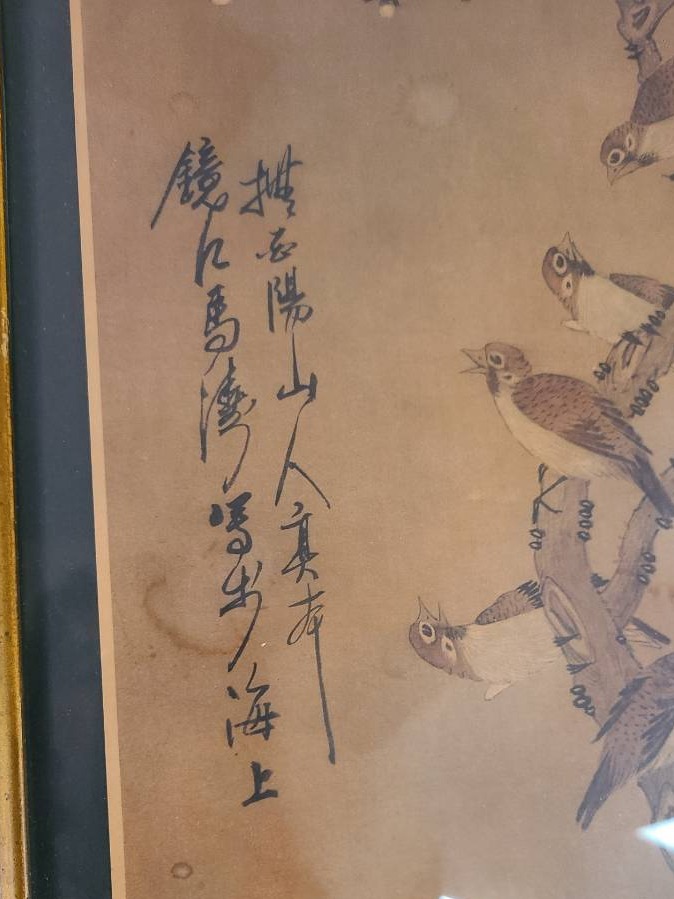 橅白陽山人真本
鏡江馬濤寫於海上